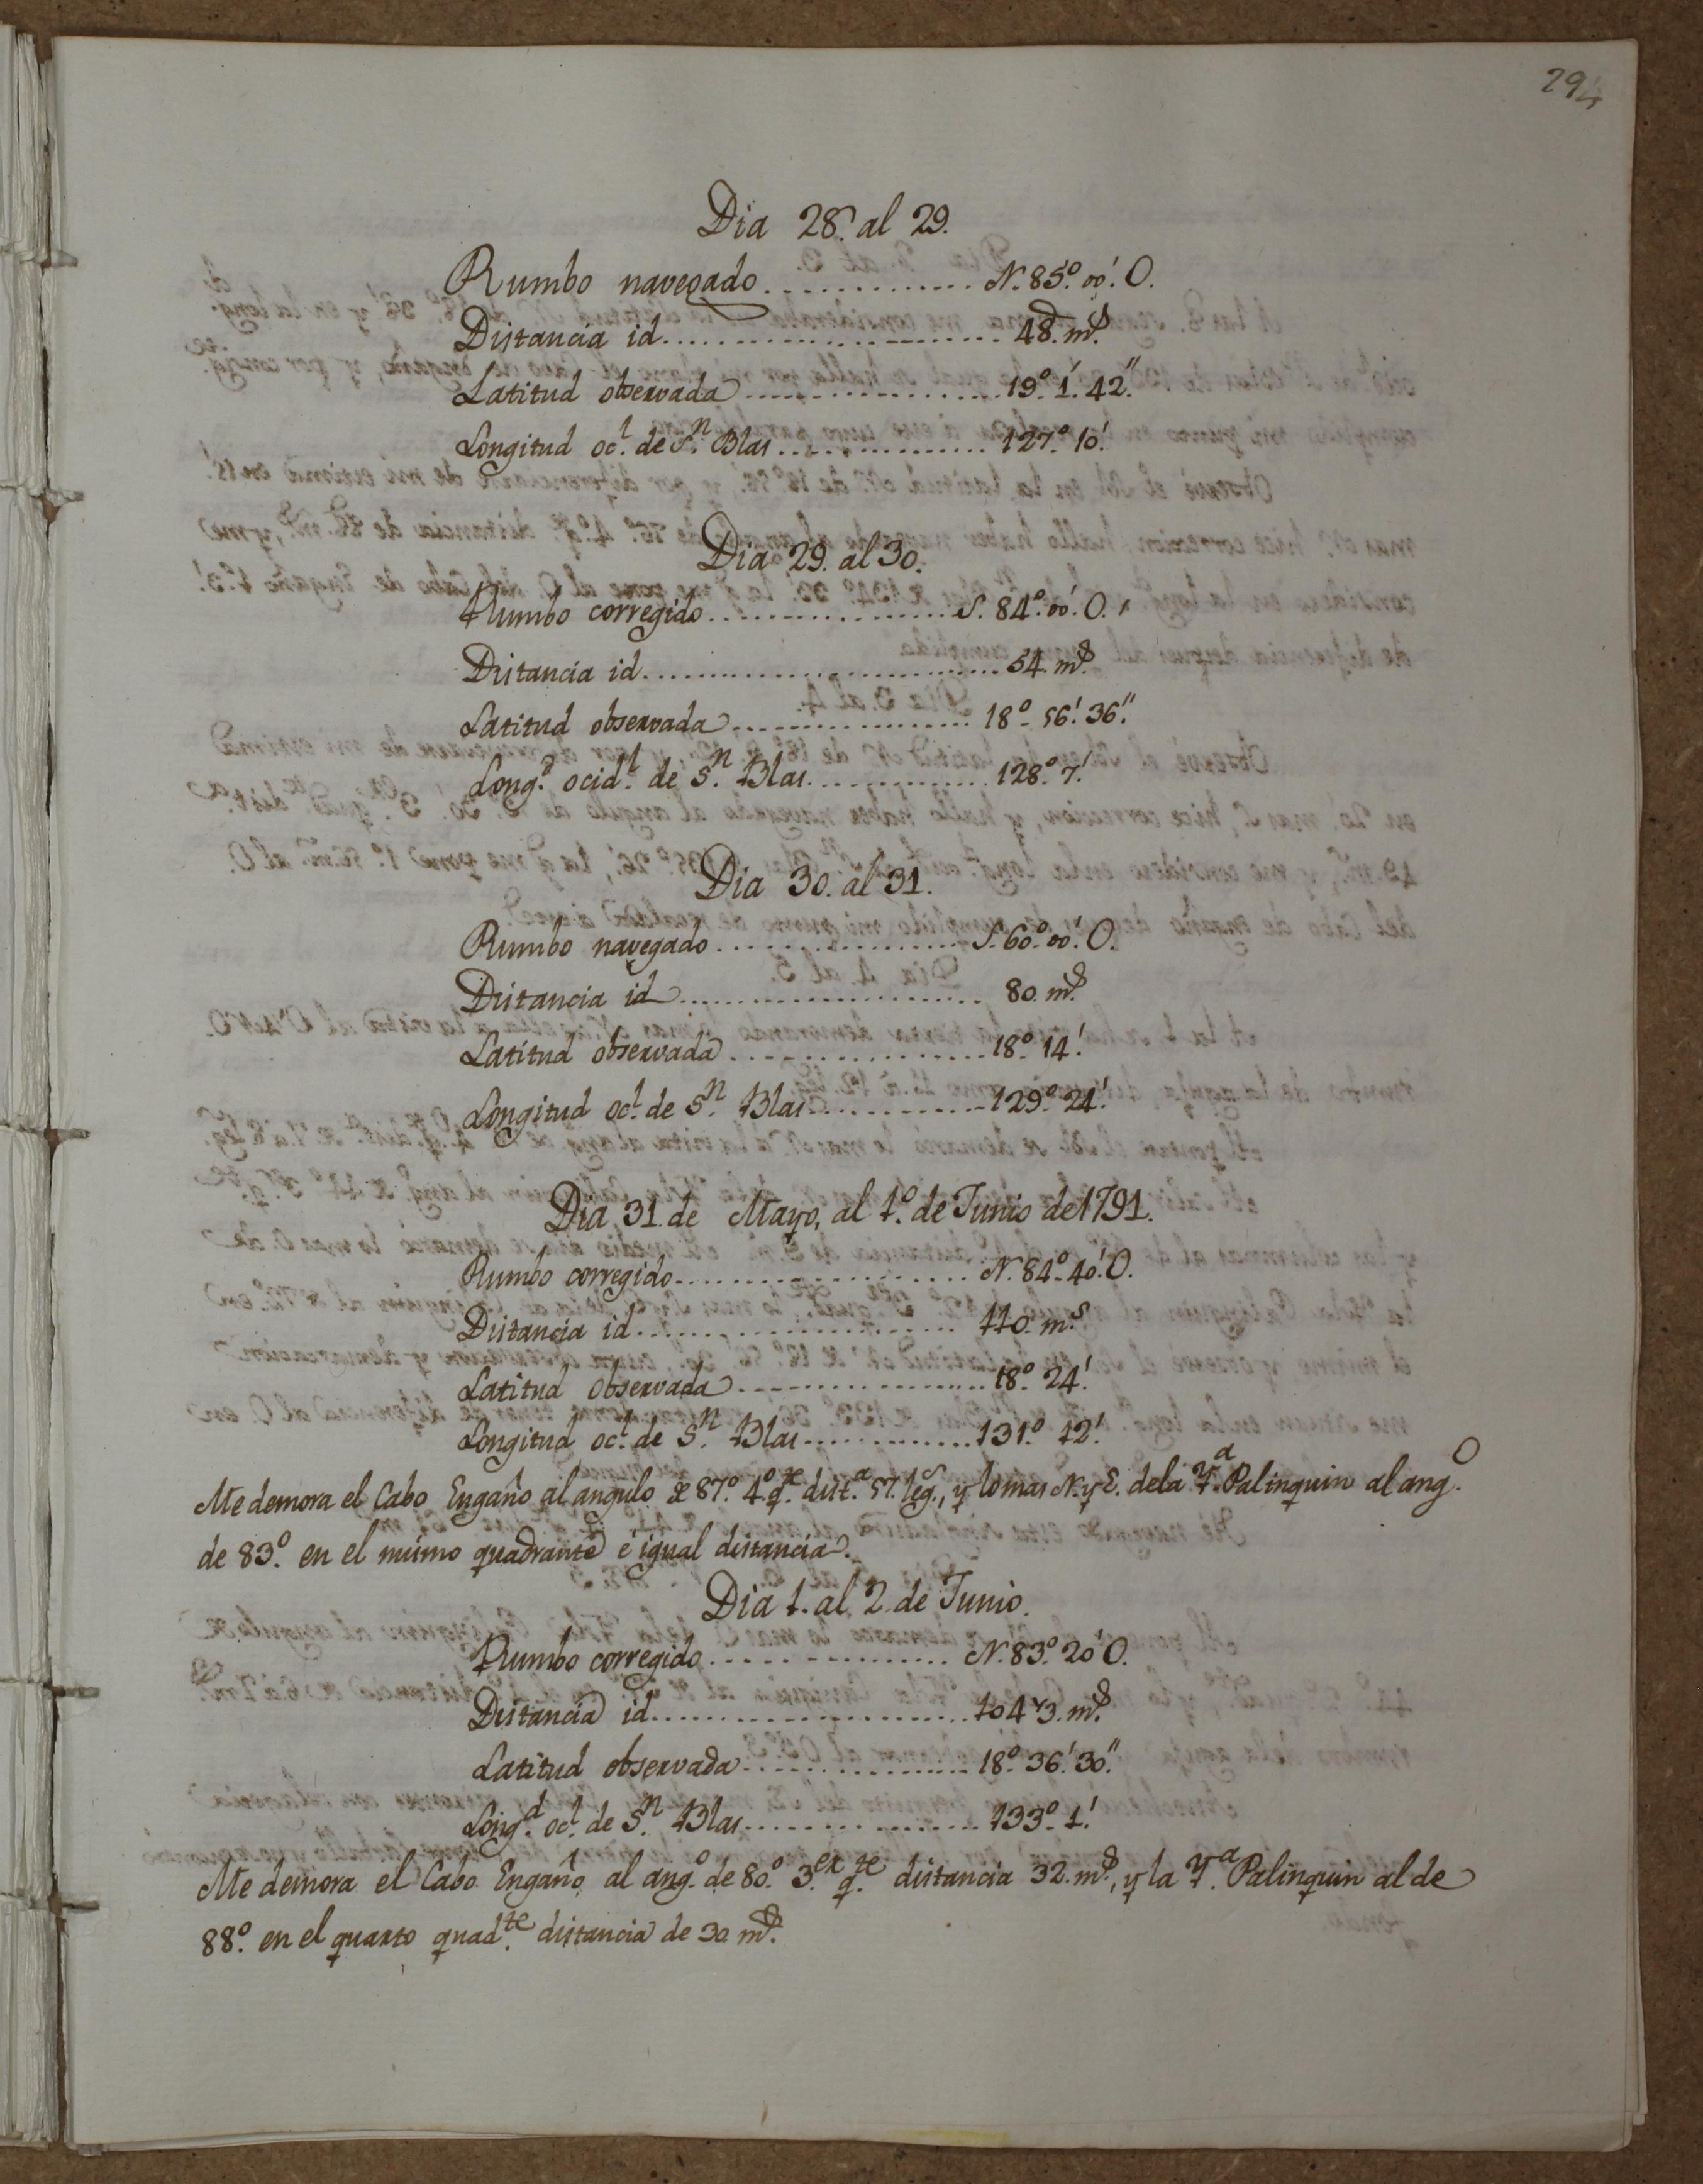 294
Dia 28. al 29.
Rumbo navegado ............. N. 85.° 00.' O.
Distancia id ........................ 48. m.s
Latitud observada ................... 19.° 1.' 42."
Longitud oc.l de S.n Blas ................ 127.° 10.'
Dia 29. al 30.
Rumbo corregido ................. S. 84.° 00.' O.
Distancia id ......................... 54. m.s
Latitud observada ................. 18.° 56.' 36."
Long.d ocid.l de S.n Blas ............. 128.° 7.'
Dia 30. al 31.
Rumbo navegado ................. S. 60.° 00.' O.
Distancia id ...................... 80. m.s
Latitud observada ................... 18.° 14.'
Longitud oc.l de S.n Blas ............. 129.° 24.'
Dia 31. de Mayo, al 1.° de Junio de 1791.
Rumbo corregido ..................... N. 84.° 40.' O.
Distancia id ....................... 110. m.s
Latitud Observada ................... 18.° 24.'
Longitud oc.l de S.n Blas ............. 131.° 12.'
Me demora el Cabo Engaño al angulo de 87.° 4.° q.te dist.a 57. leg.s, y lo mas N. y E. dela Y.a Palinquin al ang.o
de 83.° en el mismo quadrante é igual distancia.
Dia 1. al 2. de Junio.
Rumbo corregido ................. N. 83.° 20' O.
Distancia id ....................... 104 ⅓. m.s
Latitud observada ................. 18.° 36.' 30."
Long.d oc.l de S.n Blas ................. 133.° 1.'
Me demora el Cabo Engaño al ang.o de 80.° 3.er q.te distancia 32. m.s, y la Y.a Palinquin al de
88.° en el quarto quad.te distancia de 30 m.s